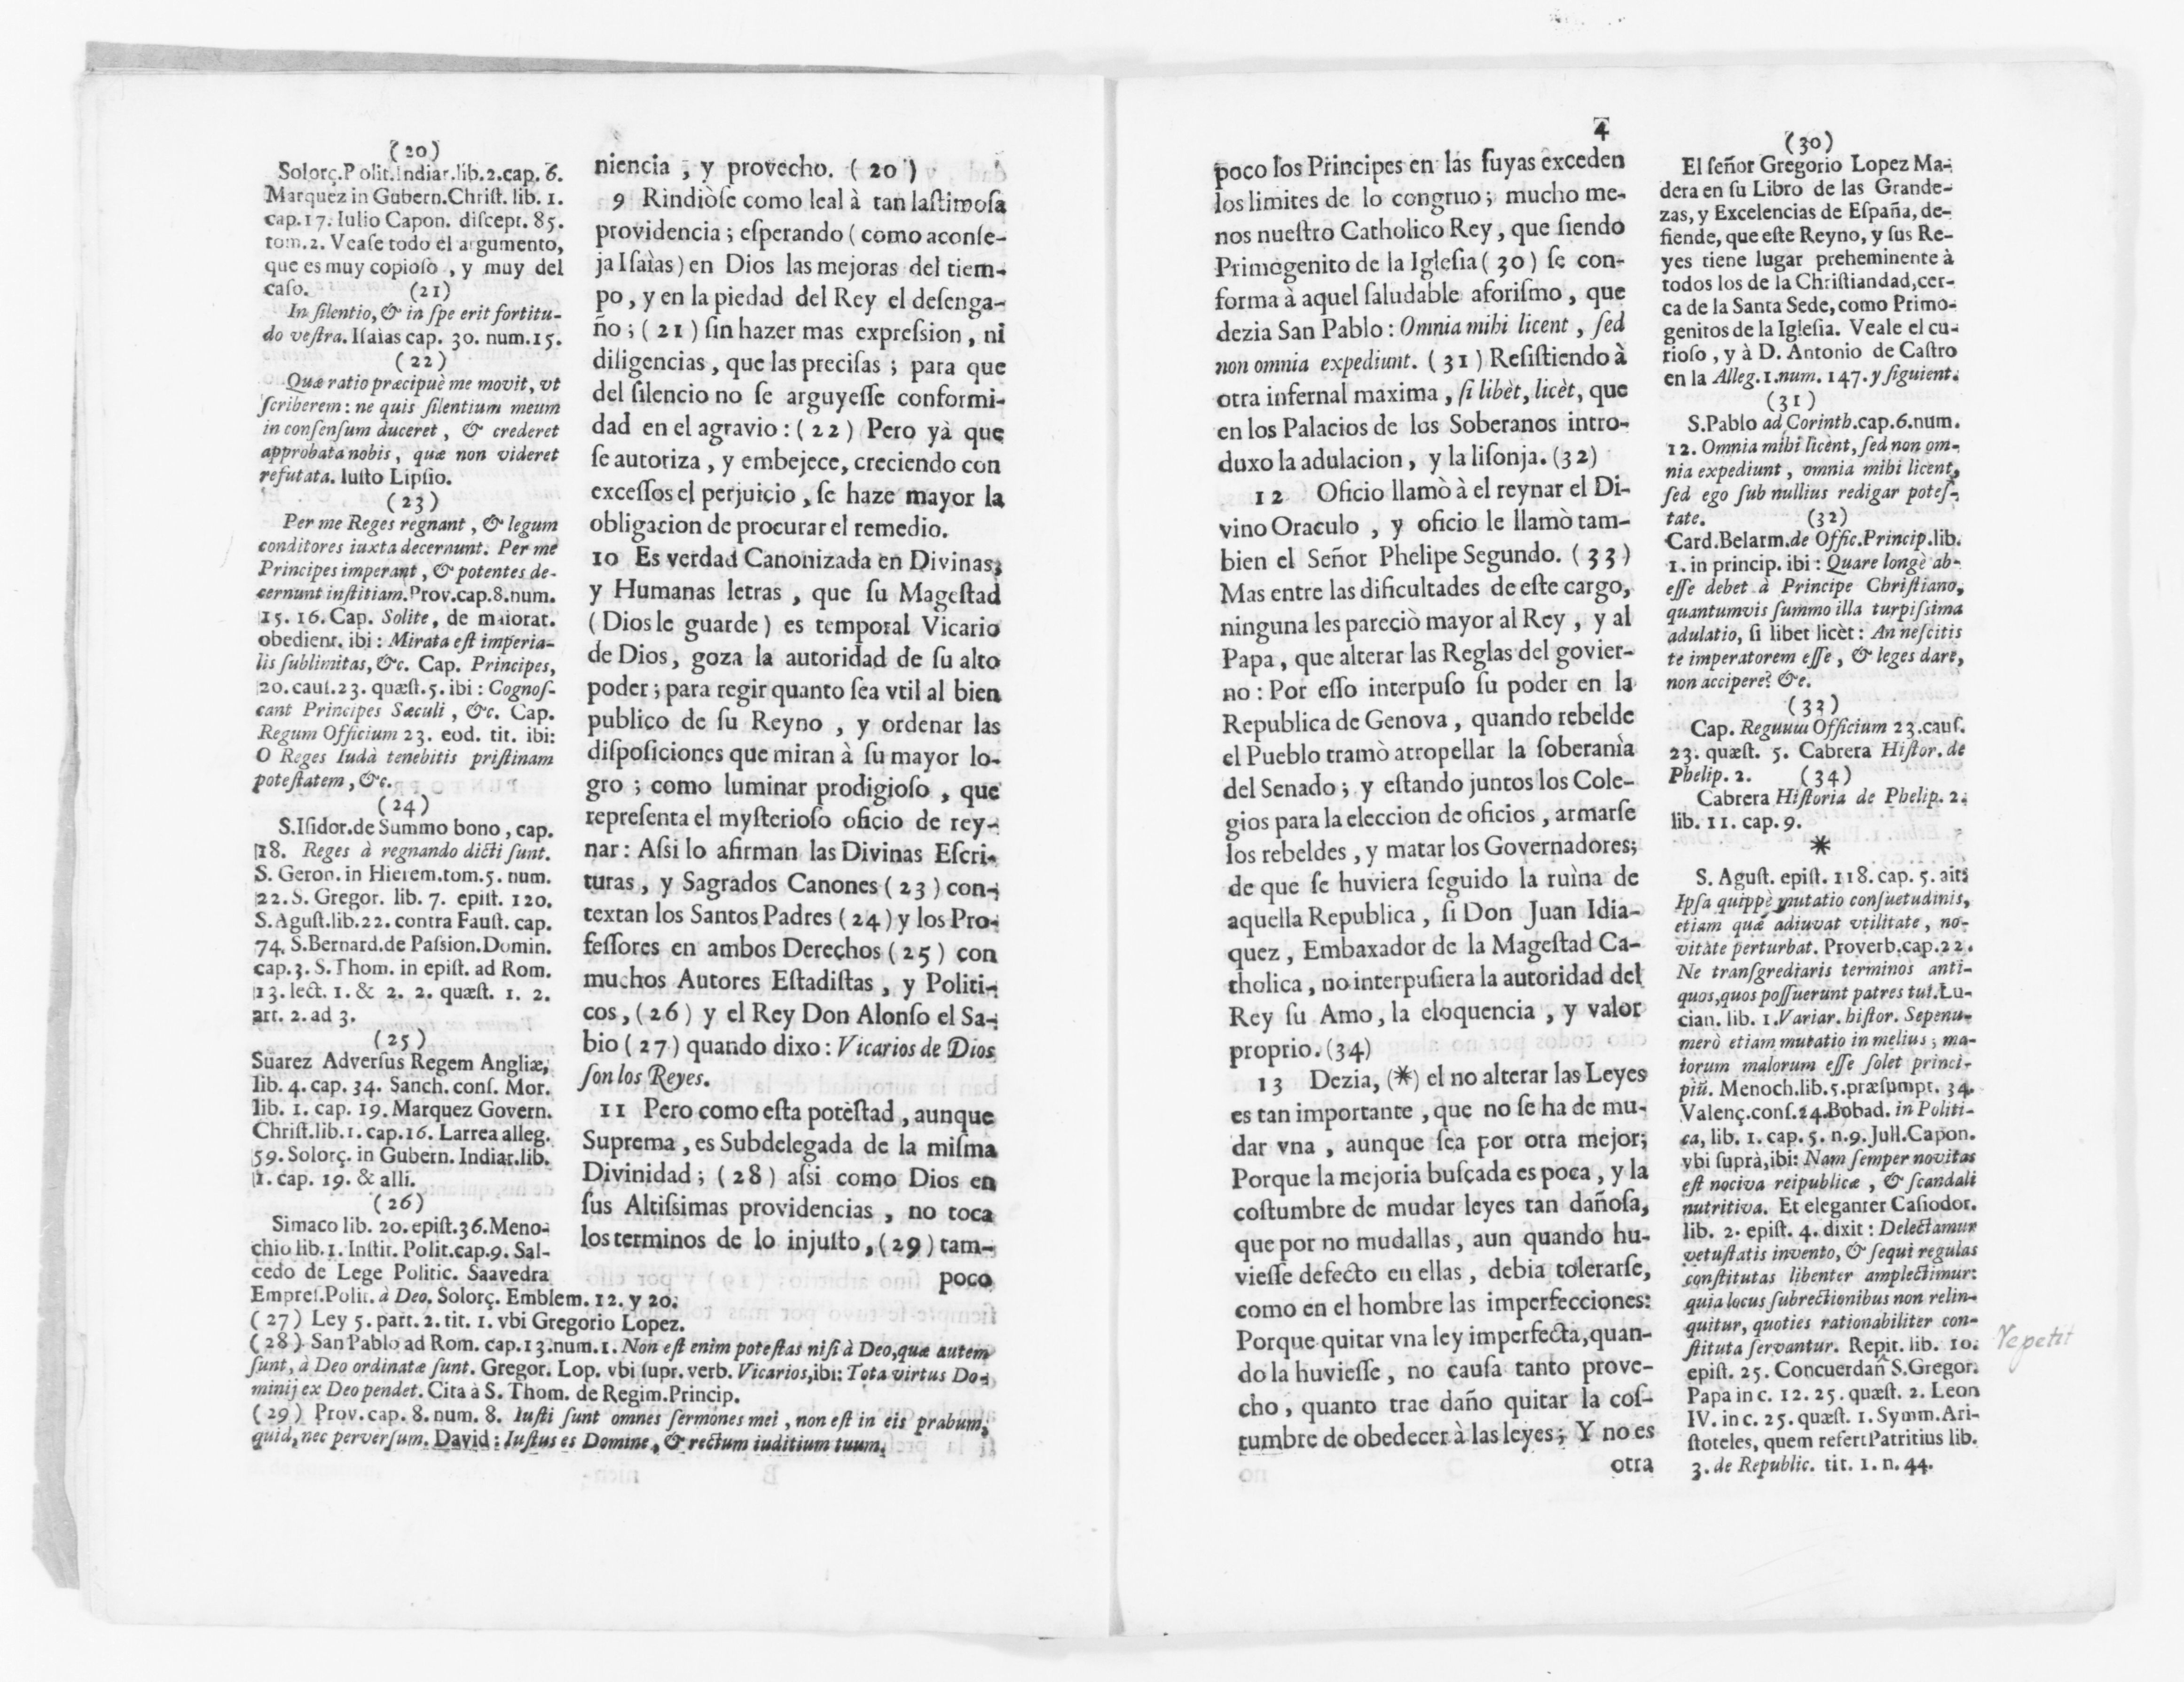 (20)
Solorç.Polit.Indiar.lib.2.cap. 6.
Marquez in Gubern.Chriſt. lib. 1.
cap.17. Iulio Capon. diſcept. 85.
tom.2. Veaſe todo el argumento,
que es muy copioſo , y muy del
caſo. (21)
In ſilentio, & in ſpe erit fortitu-
do veſtra. Iſaìas cap. 30. num.15.
(22)
Quæ ratio præcipuè me movit, vt
ſcriberem: ne quis ſilentium meum
in conſenſum duceret , & crederet
approbata nobis , quæ non videret
refutata. Iuſto Lipſio.
(23)
Per me Reges regnant , & legum
conditores iuxta decernunt. Per me
Principes imperant , & potentes de-
cernunt inſtitiam. Prov.cap.8.num.
15. 16. Cap. Solite, de maiorat.
obedient. ibi : Mirata eſt imperia-
lis ſublimitas, &c. Cap. Principes,
20. cauſ.23. quæſt.5. ibi : Cognoſ-
cant Principes Sæculi , &c. Cap.
Regum Officium 23. eod. tit. ibi:
O Reges Iudà tenebitis priſtinam
poteſtatem , &c.
(24)
S.Iſidor.de Summo bono , cap.
18. Reges à regnando dicti ſunt.
S. Geron. in Hierem.tom.5. num.
22. S. Gregor. lib. 7. epiſt. 120.
S. Aguſt.lib.22. contra Fauſt. cap.
74. S.Bernard.de Paſsion.Domin.
cap.3. S. Thom. in epiſt. ad Rom.
13. lect. 1. & 2. 2. quæſt. 1. 2.
art. 2. ad 3.
(25)
Suarez Adverſus Regem Angliæ,
lib. 4. cap. 34. Sanch. conſ. Mor.
lib. 1. cap. 19. Marquez Govern.
Chriſt.lib.1. cap.16. Larrea alleg.
59. Solorç. in Gubern. Indiar.lib.
1. cap. 19. & alli.
(26)
Simaco lib. 20. epiſt.36.Meno-
chio lib.1. Inſtit. Polit.cap.9. Sal-
cedo de Lege Politic. Saavedra
Empreſ.Polit. à Deo. Solorç. Emblem. 12. y 20.
(27) Ley 5. part. 2. tit. 1. vbi Gregorio Lopez.
(28) San Pablo ad Rom. cap.13.num.1. Non eſt enim poteſtas niſi à Deo,quæ autem
ſunt, à Deo ordinatæ ſunt. Gregor. Lop. vbi ſupr. verb. Vicarios,ibi: Tota virtus Do-
minij ex Deo pendet. Cita à S. Thom. de Regim.Princip.
(29) Prov. cap. 8. num. 8. Iuſti ſunt omnes ſermones mei , non eſt in eis prabum,
quid, nec perverſum. David : Iuſtus es Domine, & rectum iuditium tuum.
niencia , y provecho. (20)
9 Rindiòſe como leal à tan laſtimoſa
providencia ; eſperando ( como aconſe-
ja Iſaìas) en Dios las mejoras del tiem-
po , y en la piedad del Rey el deſenga-
ño ; (21) ſin hazer mas expreſsion , ni
diligencias , que las preciſas ; para que
del ſilencio no ſe arguyeſſe conformi-
dad en el agravio : (22) Pero yà que
ſe autoriza , y embejece, creciendo con
exceſſos el perjuicio , ſe haze mayor la
obligacion de procurar el remedio.
10 Es verdad Canonizada en Divinas,
y Humanas letras , que ſu Mageſtad
(Dios le guarde) es temporal Vicario
de Dios , goza la autoridad de ſu alto
poder ; para regir quanto ſea vtil al bien
publico de ſu Reyno , y ordenar las
diſpoſiciones que miran à ſu mayor lo-
gro ; como luminar prodigioſo , que
repreſenta el myſterioſo oficio de rey-
nar : Aſsi lo afirman las Divinas Eſcri-
turas , y Sagrados Canones (23) con-
textan los Santos Padres (24) y los Pro-
feſſores en ambos Derechos (25) con
muchos Autores Eſtadiſtas , y Politi-
cos , (26) y el Rey Don Alonſo el Sa-
bio (27) quando dixo : Vicarios de Dios
ſon los Reyes.
11 Pero como eſta poteſtad , aunque
Suprema , es Subdelegada de la miſma
Divinidad ; (28) aſsi como Dios en
ſus Altiſsimas providencias , no toca
los terminos de lo injuſto , (29) tam-
poco
4
poco los Principes en las ſuyas exceden
los limites de lo congruo ; mucho me-
nos nueſtro Catholico Rey , que ſiendo
Primogenito de la Igleſia (30) ſe con-
forma à aquel ſaludable aforiſmo , que
dezia San Pablo : Omnia mihi licent , ſed
non omnia expediunt. (31) Reſiſtiendo à
otra infernal maxima , ſi libèt, licèt, que
en los Palacios de los Soberanos intro-
duxo la adulacion , y la liſonja. (32)
12 Oficio llamò à el reynar el Di-
vino Oraculo , y oficio le llamò tam-
bien el Señor Phelipe Segundo. (33)
Mas entre las dificultades de eſte cargo,
ninguna les pareciò mayor al Rey , y al
Papa , que alterar las Reglas del govier-
no : Por eſſo interpuſo ſu poder en la
Republica de Genova , quando rebelde
el Pueblo tramò atropellar la ſoberanìa
del Senado ; y eſtando juntos los Cole-
gios para la eleccion de oficios , armarſe
los rebeldes , y matar los Governadores;
de que ſe huviera ſeguido la ruìna de
aquella Republica , ſi Don Juan Idia-
quez , Embaxador de la Mageſtad Ca-
tholica , no interpuſiera la autoridad del
Rey ſu Amo , la eloquencia , y valor
proprio. (34)
13 Dezia, (*) el no alterar las Leyes
es tan importante , que no ſe ha de mu-
dar vna , aunque ſea por otra mejor;
Porque la mejoria buſcada es poca , y la
coſtumbre de mudar leyes tan dañoſa,
que por no mudallas , aun quando hu-
vieſſe defecto en ellas , debia tolerarſe,
como en el hombre las imperfecciones:
Porque quitar vna ley imperfecta,quan-
do la huvieſſe , no cauſa tanto prove-
cho , quanto trae daño quitar la coſ-
tumbre de obedecer à las leyes ; Y no es
otra
(30)
El ſeñor Gregorio Lopez Ma-
dera en ſu Libro de las Grande-
zas, y Excelencias de Eſpaña, de-
fiende, que eſte Reyno, y ſus Re-
yes tiene lugar preheminente à
todos los de la Chriſtiandad,cer-
ca de la Santa Sede, como Primo-
genitos de la Igleſia. Veale el cu-
rioſo , y à D. Antonio de Caſtro
en la Alleg.1.num. 147.y ſiguient.
(31)
S.Pablo ad Corinth.cap.6.num.
12. Omnia mihi licènt, ſed non om-
nia expediunt , omnia mihi licent,
ſed ego ſub nullius redigar poteſ-
tate. (32)
Card.Belarm.de Offic.Princip.lib.
1. in princip. ibi : Quare longè ab-
eſſe debet à Principe Chriſtiano,
quantumvis ſummo illa turpiſsima
adulatio, ſi libet licèt : An neſcitis
te imperatorem eſſe , & leges dare,
non accipere? &c.
(33)
Cap. Reguum Officium 23.cauſ.
23. quæſt. 5. Cabrera Hiſtor. de
Phelip. 2. (34)
Cabrera Hiſtoria de Phelip. 2.
lib. 11. cap. 9.
*
S. Aguſt. epiſt. 118. cap. 5. ait:
Ipſa quippè mutatio conſuetudinis,
etiam quæ adiuvat vtilitate , no-
vitàte perturbat. Proverb.cap.22.
Ne tranſgrediaris terminos anti-
quos,quos poſſuerunt patres tui.Lu-
cian. lib. 1.Variar. hiſtor. Sepenu-
merò etiam mutatio in melius ; ma-
iorum malorum eſſe ſolet princi-
piũ. Menoch.lib.5.præſumpt. 34.
Valenç.conſ.24.Bobad. in Politi-
ca, lib. 1. cap. 5. n.9. Jull.Capon.
vbi ſuprà,ibi: Nam ſemper novitas
eſt nociva reipublicæ , & ſcandali
nutritiva. Et eleganter Caſiodor.
lib. 2. epiſt. 4. dixit : Delectamur
vetuſtatis invento, & ſequi regulas
conſtitutas libenter amplectimur:
quia locus ſubrectionibus non relin-
quitur, quoties rationabiliter con-
ſtituta ſervantur. Repit. lib. 10.
epiſt. 25. Concuerdañ S.Gregor.
Papa in c. 12. 25. quæſt. 2. Leon
IV. in c. 25. quæſt. 1. Symm.Ari-
ſtoteles, quem refert Patritius lib.
3. de Republic. tit. 1. n. 44.
repetit